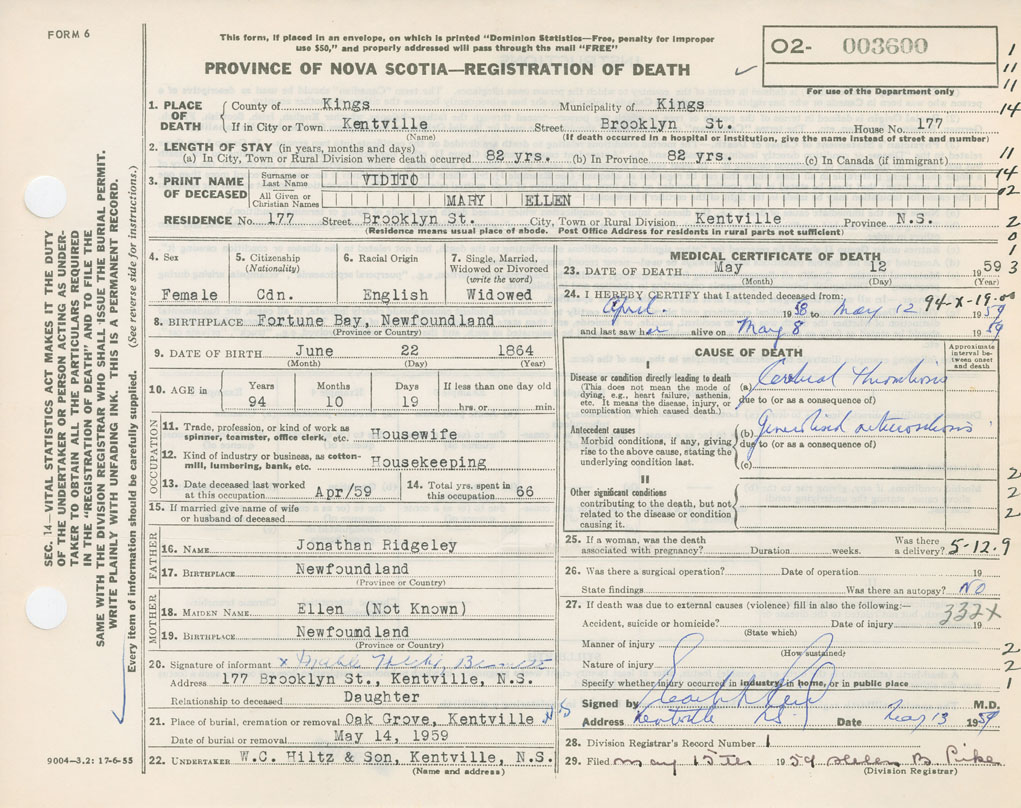 FORM 6
This form, if placed in an envelope, on which is printed "Dominion Statistics—Free, penalty for improper
use $50," and properly addressed will pass through the mail "FREE"
PROVINCE OF NOVA SCOTIA—REGISTRATION OF DEATH
02- 003600
For use of the Department only
1. PLACE OF DEATH
County of Kings Municipality of Kings
If in City or Town Kentville Street Brooklyn St. House No. 177
(Name) (If death occurred in a hospital or institution, give the name instead of street and number)
2. LENGTH OF STAY (in years, months and days)
(a) In City, Town or Rural Division where death occurred 82 yrs. (b) In Province 82 yrs. (c) In Canada (if immigrant)
3. PRINT NAME OF DECEASED
Surname or Last Name VIDITO
All Given or Christian Names MARY ELLEN
RESIDENCE No. 177 Street Brooklyn St. City, Town or Rural Division Kentville Province N.S.
(Residence means usual place of abode. Post Office Address for residents in rural parts not sufficient)
4. Sex
Female
5. Citizenship (Nationality)
Cdn.
6. Racial Origin
English
7. Single, Married, Widowed or Divorced (write the word)
Widowed
8. BIRTHPLACE Fortune Bay, Newfoundland
(Province or Country)
9. DATE OF BIRTH June 22 1864
(Month) (Day) (Year)
10. AGE in Years Months Days If less than one day old
94 10 19 hrs. or min.
OCCUPATION
11. Trade, profession, or kind of work as
spinner, teamster, office clerk, etc. Housewife
12. Kind of industry or business, as cotton-
mill, lumbering, bank, etc. Housekeeping
13. Date deceased last worked
at this occupation Apr/59
14. Total yrs. spent in
this occupation 66
15. If married give name of wife
or husband of deceased
FATHER
16. NAME Jonathan Ridgeley
17. BIRTHPLACE Newfoundland
(Province or Country)
MOTHER
18. MAIDEN NAME. Ellen (Not Known)
19. BIRTHPLACE Newfoumdland
(Province or Country)
20. Signature of informant x
Address 177 Brooklyn St., Kentville, N.S.
Relationship to deceased Daughter
21. Place of burial, cremation or removal Oak Grove, Kentville N S
Date of burial or removal May 14, 1959
22. UNDERTAKER W.C. Hiltz & Son, Kentville, N.S.
(Name and address)
MEDICAL CERTIFICATE OF DEATH
23. DATE OF DEATH May 12 1959
(Month) (Day) (Year)
24. I HEREBY CERTIFY that I attended deceased from:
94-X-19-00
April 1958 to May 12 1959
and last saw her alive on May 8 1959
CAUSE OF DEATH
Approximate interval between onset and death
I
Disease or condition directly leading to death
(This does not mean the mode of
dying, e.g., heart failure, asthenia,
etc. It means the disease, injury, or
complication which caused death.)
(a) Cerebral thrombosis
due to (or as a consequence of)
Antecedent causes
Morbid conditions, if any, giving
rise to the above cause, stating the
underlying condition last.
(b) Generalised arteriosclerosis
due to (or as a consequence of)
(c)
II
Other significant conditions
contributing to the death, but not
related to the disease or condition
causing it.
25. If a woman, was the death
associated with pregnancy? Duration weeks. Was there a delivery?
5-12.9
26. Was there a surgical operation? Date of operation 19
State findings Was there an autopsy? NO
27. If death was due to external causes (violence) fill in also the following:—
332X
Accident, suicide or homicide? Date of injury 19
(State which)
Manner of injury
(How sustained)
Nature of injury
Specify whether injury occurred in industry, in home, or in public place
Signed by M.D.
Address Kentville N.S. Date May 13 1959
28. Division Registrar's Record Number 1
29. Filed May 15th 1959 Helen B. Pike
(Division Registrar)
SEC. 14—VITAL STATISTICS ACT MAKES IT THE DUTY
OF THE UNDERTAKER OR PERSON ACTING AS UNDER-
TAKER TO OBTAIN ALL THE PARTICULARS REQUIRED
IN THE "REGISTRATION OF DEATH" AND TO FILE THE
SAME WITH THE DIVISION REGISTRAR WHO SHALL ISSUE THE BURIAL PERMIT.
WRITE PLAINLY WITH UNFADING INK. THIS IS A PERMANENT RECORD.
Every item of information should be carefully supplied. (See reverse side for instructions.)
9004—3.2: 17-6-55
1
11
11
14
11
14
02
2
0
1
3
2
2
2
2
1